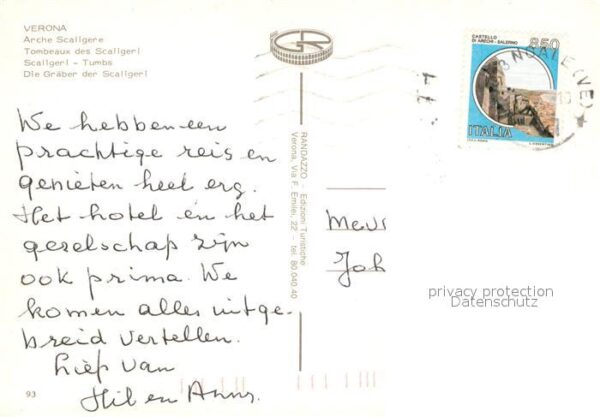 VERONA
Arche Scaligere
Tombeaux des Scaligeri
Scaligeri - Tumbs
Die Gräber der Scaligeri
We hebben een
prachtige reis en
genieten heel erg.
Het hotel en het
geselschap zijn
ook prima. We
komen alles uitge-
breid vertellen.
Liefs van
Hil en Anna.
93
RANDAZZO - Edizioni Turistiche
Verona, Via F. Emilei, 22 - tel. 80.040.40
CASTELLO
DI ARECHI - SALERNO
850
ITALIA
(VE)
Mevr
Joh
privacy protection
Datenschutz